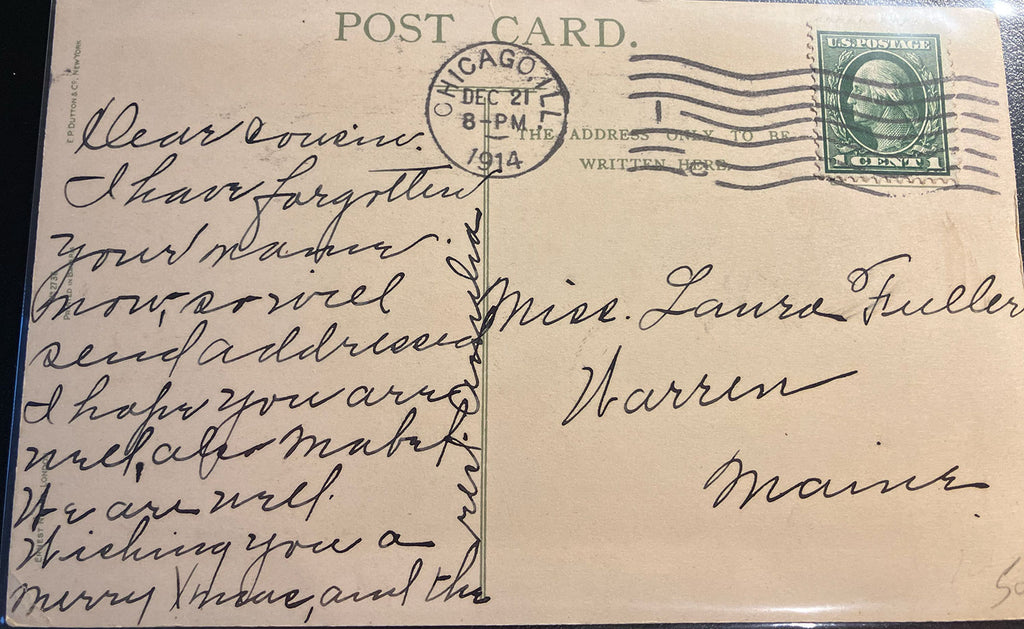 POST CARD.
E.P. DUTTON & CO. NEW YORK
CHICAGO, ILL.
DEC 21
8-PM
1914
U.S. POSTAGE
1 CENT 1
THE ADDRESS ONLY TO BE
WRITTEN HERE.
Dear Cousin.
I have forgotten
your name
now, so will
send addressed
I hope you are
well, also Mabel.
We are well.
Wishing you a
merry Xmas, and the
rest.
Miss. Laura Fuller
Warren
Maine